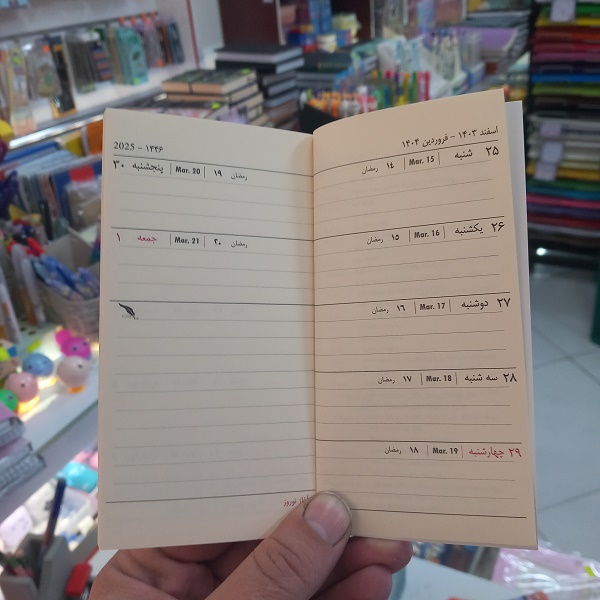 اسفند ۱۴۰۳ - فروردین ۱۴۰۴
۲۵ شنبه | Mar. 15 | ۱۴ رمضان
۲۶ یکشنبه | Mar. 16 | ۱۵ رمضان
۲۷ دوشنبه | Mar. 17 | ۱۶ رمضان
۲۸ سه شنبه | Mar. 18 | ۱۷ رمضان
۲۹ چهارشنبه | Mar. 19 | ۱۸ رمضان
2025 - ۱۴۴۶
۳۰ پنجشنبه | Mar. 20 | ۱۹ رمضان
۱ جمعه | Mar. 21 | ۲۰ رمضان
نوروز